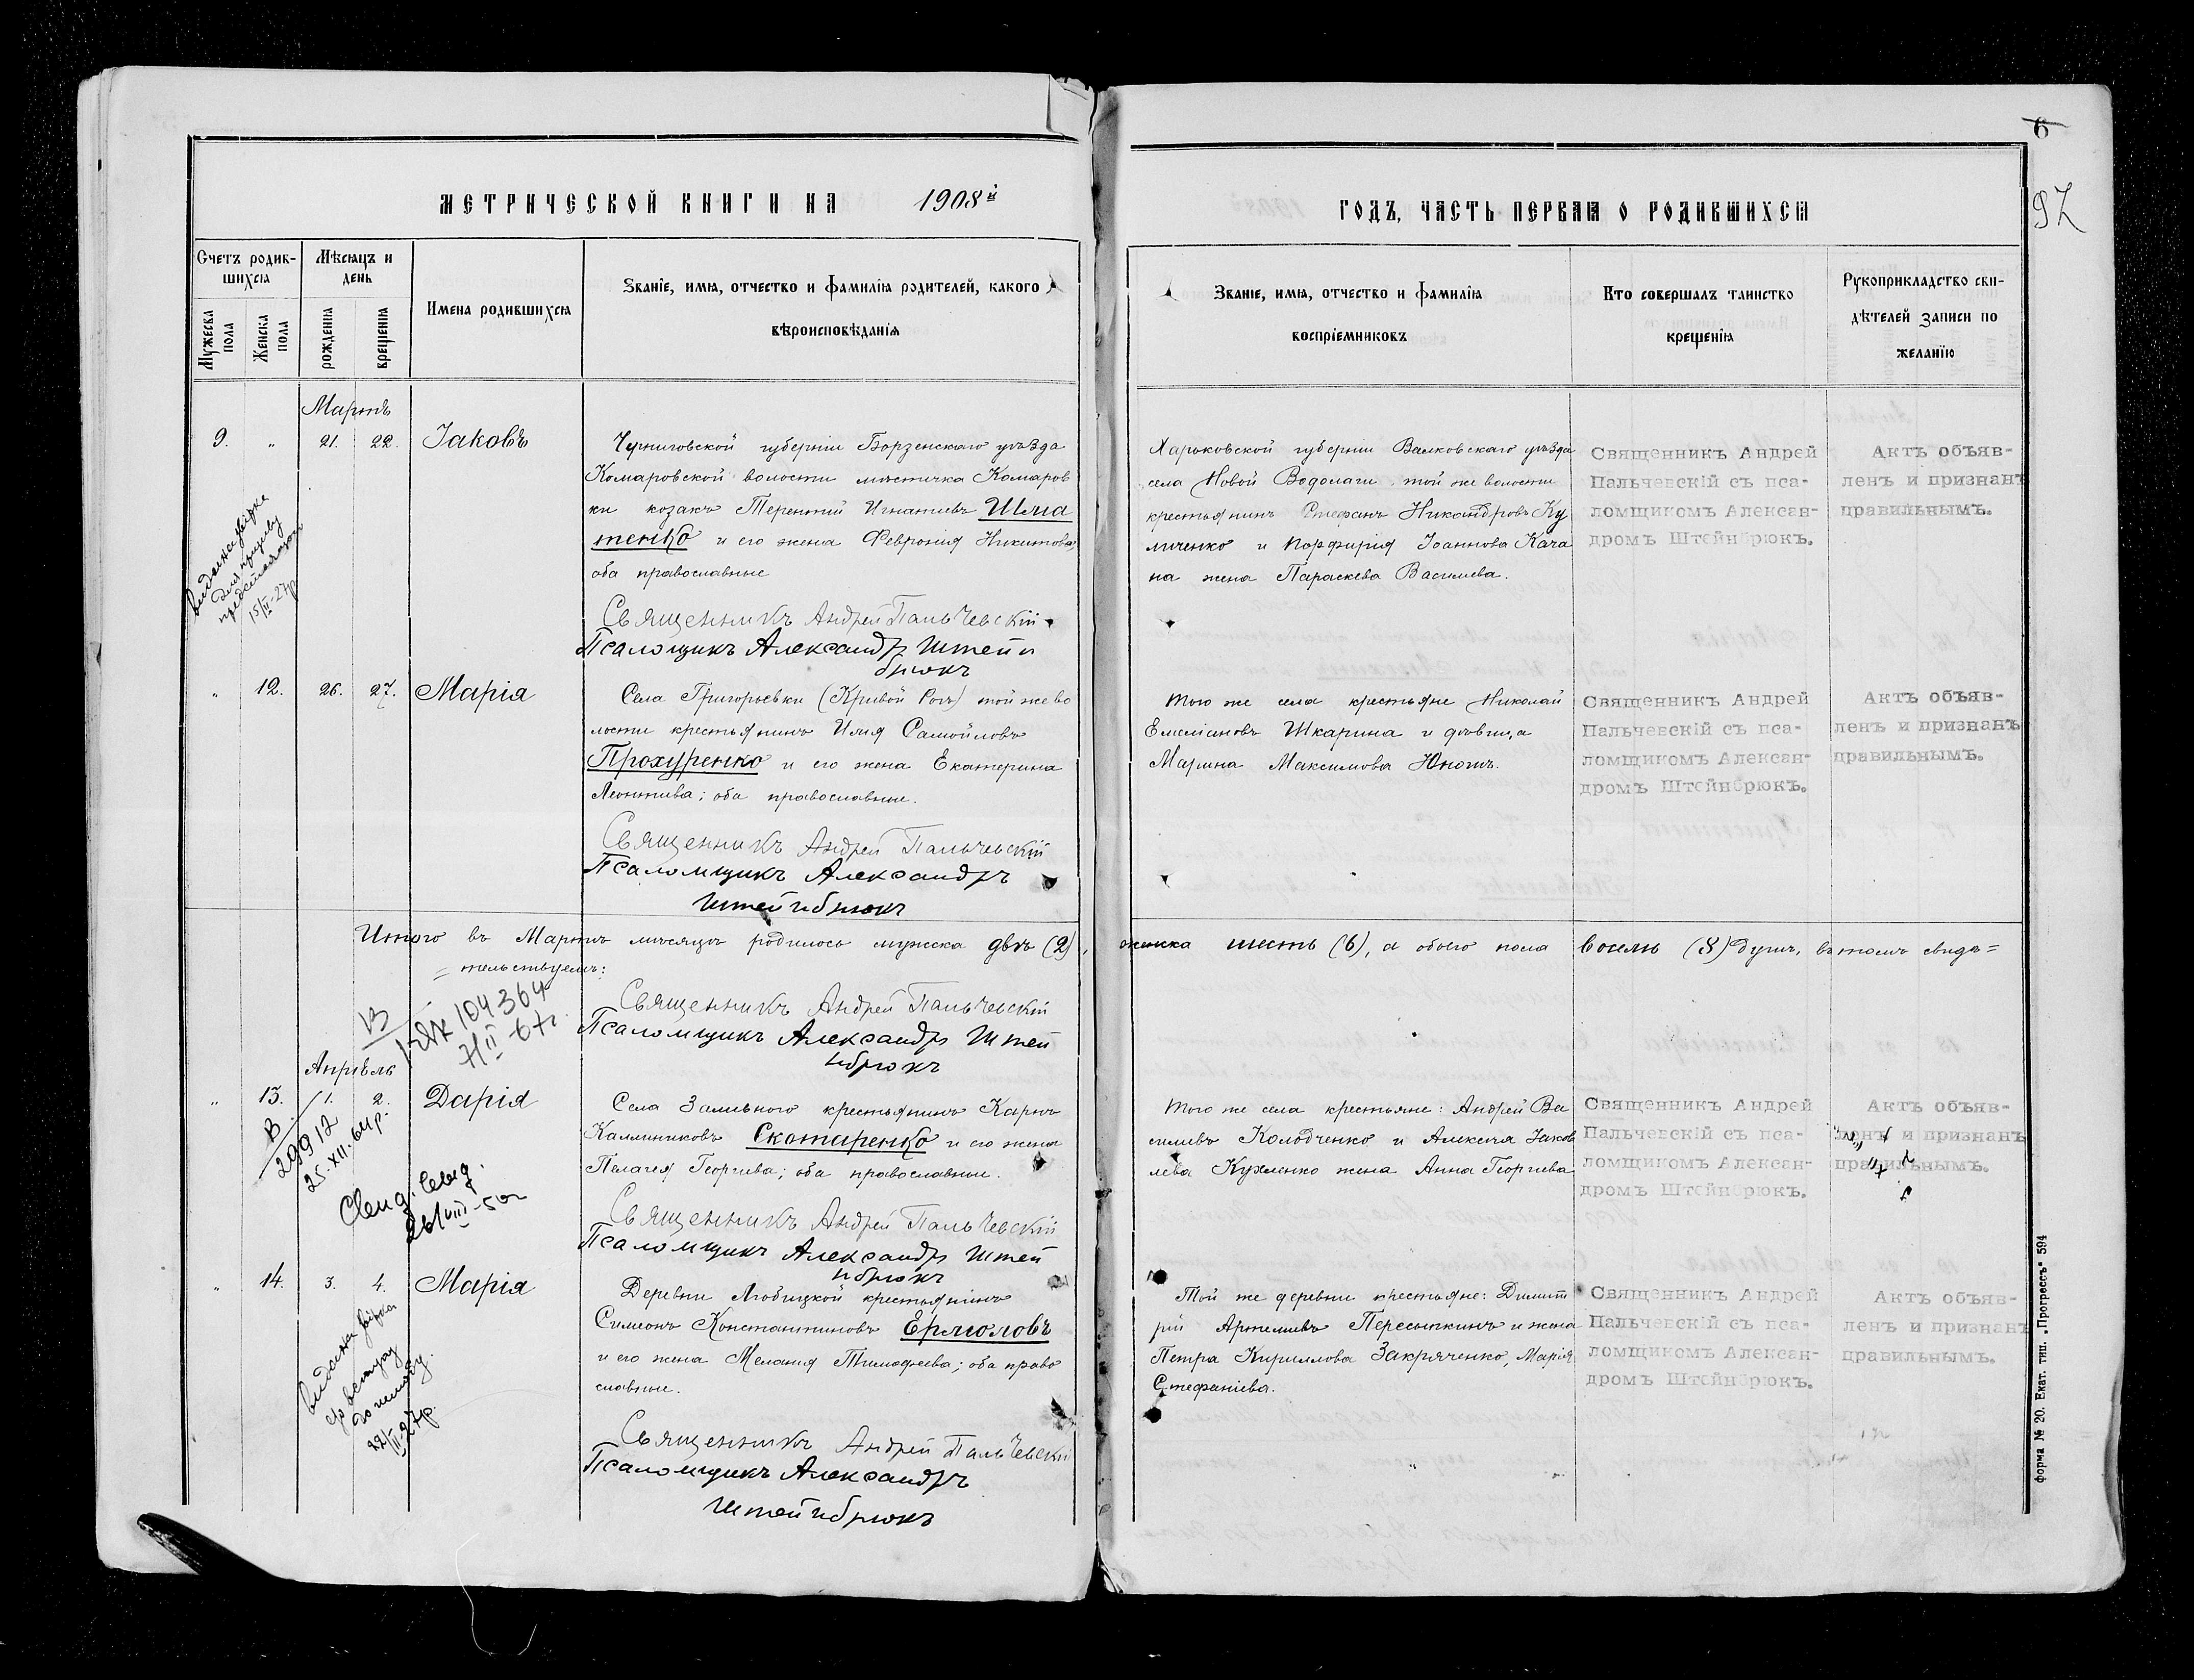 6
97
МЕТРИЧЕСКОЙ КНИГИ НА 1908й
ГОДЪ, ЧАСТЬ ПЕРВАЯ О РОДИВШИХСЯ
Счетъ родив-
шихся
Мужеска пола
Женска пола
Мѣсяцъ и
день
рожденія
крещенія
Имена родившихся
Званіе, имя, отчество и фамилія родителей, какого
вѣроисповѣданія
Званіе, имя, отчество и фамилія
воспріемниковъ
Кто совершалъ таинство
крещенія
Рукоприкладство сви-
дѣтелей записи по
желанію
Мартъ
9. „ 21. 22. Іаковъ
Черниговской губерніи Борзенскаго уѣзда
Комаровской волости мѣстечка Комаров
ки козакъ Терентій Игнатіевъ Шма
тенко и его жена Февронія Никитова,
оба православные
Священникъ Андрей Пальчевскій
Псаломщикъ Александръ Штейн
брюкъ
Харьковской губерніи Валковскаго уѣзда
села Новой Водолаги той же волости
крестьянинъ Стефанъ Никандровъ Ку
личенко и Порфирія Іоаннова Кача
на жена Параскева Василіева.
Священникъ Андрей
Пальчевскій съ пса-
ломщикомъ Алексан-
дромъ Штейнбрюкъ.
Актъ объяв-
ленъ и признанъ
правильнымъ.
15/II-27р
„ 12. 26. 27. Марія
Села Григорьевки (Кривой Рогъ) той же во
лости крестьянинъ Илія Самойловъ
Прохуренко и его жена Екатерина
Леонтіева; оба православные.
Священникъ Андрей Пальчевскій
Псаломщикъ Александръ
Штейнбрюкъ
Того же села крестьяне Николай
Емеліановъ Шкарина и дѣвица
Марина Максимова Юноша.
Священникъ Андрей
Пальчевскій съ пса-
ломщикомъ Алексан-
дромъ Штейнбрюкъ.
Актъ объяв-
ленъ и признанъ
правильнымъ.
Итого въ Мартѣ мѣсяцѣ родилось мужска двѣ (2), женска шесть (6), а обоего пола восемь (8) душъ, въ томъ свидѣ=
=тельствуемъ:
Священникъ Андрей Пальчевскій
Псаломщикъ Александръ Штей
нбрюкъ
104364
7/II-67г.
Апрѣль
„ 13. 1. 2. Дарія
Села Зеленого крестьянинъ Карпъ
Каллиниковъ Скотаренко и его жена
Пелагея Георгіева; оба православные.
Священникъ Андрей Пальчевскій
Псаломщикъ Александръ Штей
нбрюкъ
Того же села крестьяне: Андрей Ва
силіевъ Колодченко и Алексея Іаков
лева Кухленко жена Анна Георгіева
Священникъ Андрей
Пальчевскій съ пса-
ломщикомъ Алексан-
дромъ Штейнбрюкъ.
Актъ объяв-
ленъ и признанъ
правильнымъ.
В 29912
25.XII.64р.
26/VIII-50г
„ 14. 3. 4. Марія
Деревни Любицкой крестьянинъ
Симеонъ Константиновъ Ермоловъ
и его жена Меланія Тимофеева; оба право
славные.
Священникъ Андрей Пальчевскій
Псаломщикъ Александръ
Штейнбрюкъ
Той же деревни крестьяне: Димит
рій Артеміевъ Пересыпкинъ и жена
Петра Кириллова Закряченко, Марія
Стефаніева.
Священникъ Андрей
Пальчевскій съ пса-
ломщикомъ Алексан-
дромъ Штейнбрюкъ.
Актъ объяв-
ленъ и признанъ
правильнымъ.
22/II-27р.
Форма № 20. Екат. тип. „Прогрессъ" 594